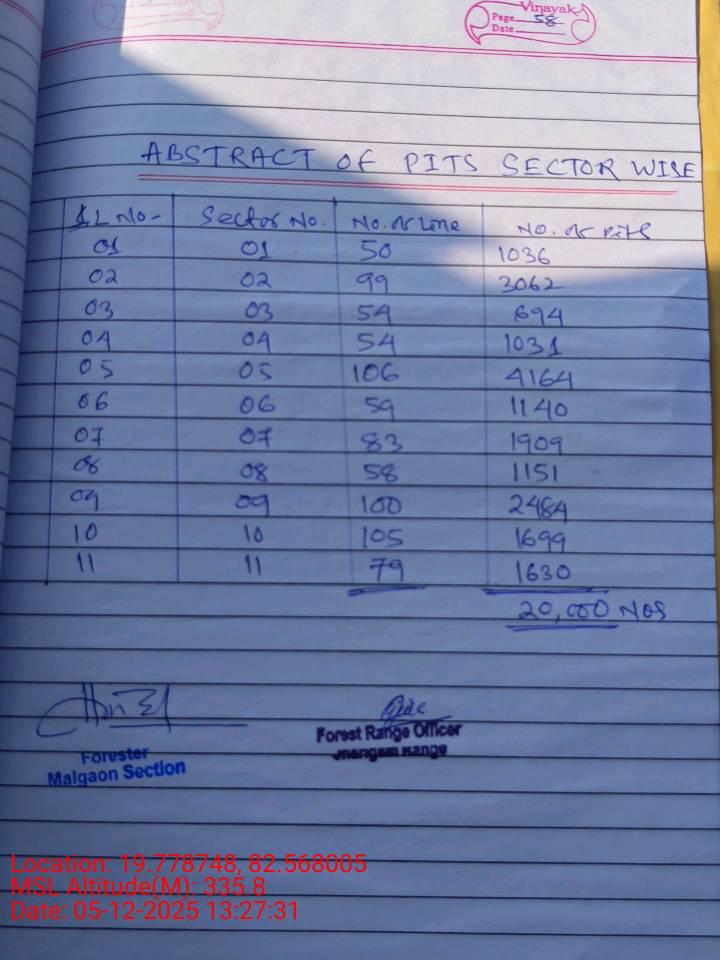 Vinayak
Page 58
Date
ABSTRACT OF PITS SECTOR WISE
SL No- Sector No. No. of Line No. of Pits
01 01 50 1036
02 02 99 3062
03 03 54 694
04 04 54 1031
05 05 106 4164
06 06 59 1140
07 07 83 1909
08 08 58 1151
09 09 100 2484
10 10 105 1699
11 11 79 1630
20,000 NOS
Forester
Malgaon Section
Forest Range Officer
Range
Location: 19.778748, 82.568005
MSL Altitude(M): 335.8
Date: 05-12-2025 13:27:31